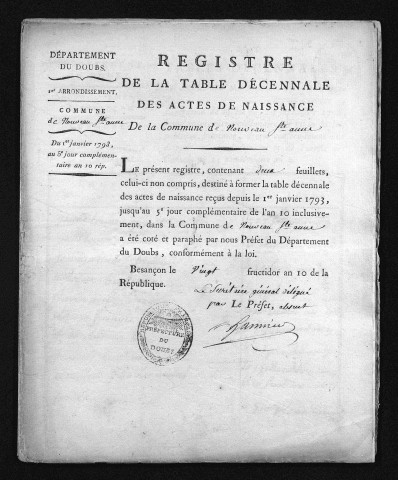 DÉPARTEMENT
DU DOUBS.
1er ARRONDISSEMENT.
COMMUNE
de Nouveau Ste anne
Du 1er janvier 1793,
au 5e jour complémen-
taire an 10 rép.
REGISTRE
DE LA TABLE DÉCENNALE
DES ACTES DE NAISSANCE
De la Commune de Nouveau Ste anne
LE présent registre, contenant deux feuillets,
celui-ci non compris, destiné à former la table décennale
des actes de naissance reçus depuis le 1er janvier 1793,
jusqu'au 5e jour complémentaire de l'an 10 inclusive-
ment, dans la Commune de Nouveau Ste anne
a été coté et paraphé par nous Préfet du Département
du Doubs, conformément à la loi.
Besançon le Vingt fructidor an 10 de la
République.
Le Secrétaire général délégué
par Le Préfet, absent
PRÉFECTURE
DU
DOUBS